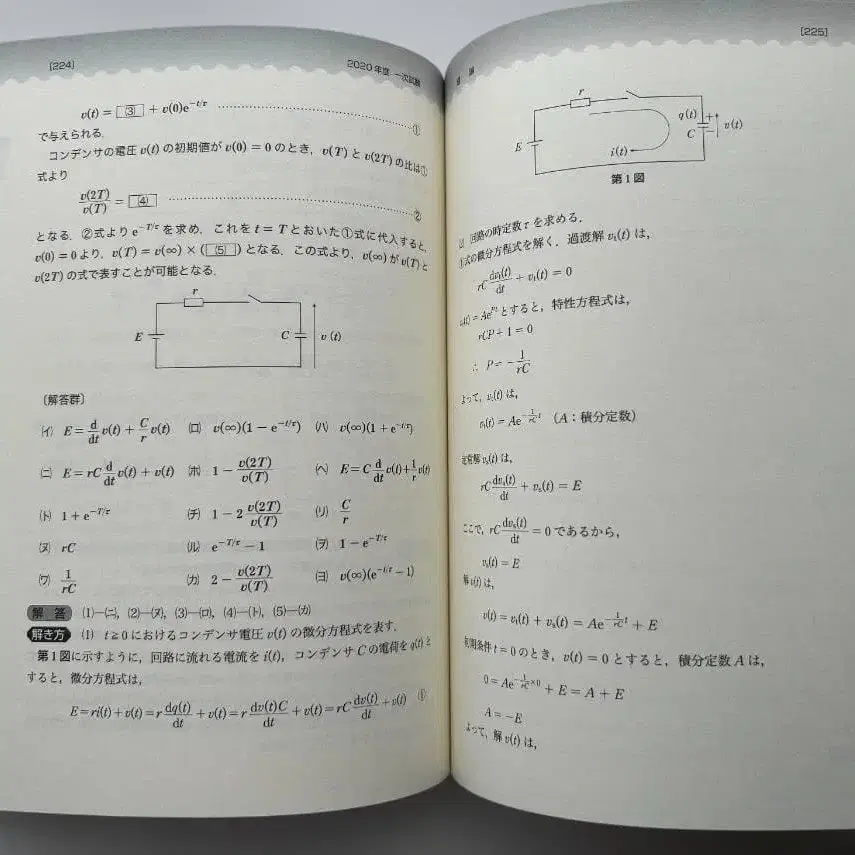 [224]
2020年度 一次試験
v(t) = [(3)] + v(0)e^{-t/τ} ……①
で与えられる.
コンデンサの電圧 v(t) の初期値が v(0) = 0 のとき, v(T) と v(2T) の比は①
式より
v(2T)/v(T) = [(4)] ……②
となる. ②式より e^{-T/τ} を求め, これを t = T とおいた①式に代入すると,
v(0) = 0 より, v(T) = v(∞) × ([(5)]) となる. この式より, v(∞) が v(T) と
v(2T) の式で表すことが可能となる.
r
E
C
v(t)
〔解答群〕
(イ) E = d/dt v(t) + C/r v(t) (ロ) v(∞)(1 − e^{-t/τ}) (ハ) v(∞)(1 + e^{-t/τ})
(ニ) E = rC d/dt v(t) + v(t) (ホ) 1 − v(2T)/v(T) (ヘ) E = C d/dt v(t) + 1/r v(t)
(ト) 1 + e^{-T/τ} (チ) 1 − 2 v(2T)/v(T) (リ) C/r
(ヌ) rC (ル) e^{-T/τ} − 1 (ヲ) 1 − e^{-T/τ}
(ワ) 1/rC (カ) 2 − v(2T)/v(T) (ヨ) v(∞)(e^{-t/τ} − 1)
解 答 (1)―(ニ), (2)―(ヌ), (3)―(ロ), (4)―(ト), (5)―(カ)
解き方 (1) t ≧ 0 におけるコンデンサ電圧 v(t) の微分方程式を表す.
第1図に示すように, 回路に流れる電流を i(t), コンデンサ C の電荷を q(t) と
すると, 微分方程式は,
E = ri(t) + v(t) = r dq(t)/dt + v(t) = r dv(t)C/dt + v(t) = rC dv(t)/dt + v(t) ①
[225]
論
r
E
i(t)
q(t)
C
+
v(t)
第1図
回路の時定数 τ を求める.
式の微分方程式を解く. 過渡解 v_t(t) は,
rC dv_t(t)/dt + v_t(t) = 0
v_t(t) = Ae^{Pt} とすると, 特性方程式は,
rCP + 1 = 0
∴ P = − 1/rC
よって, v_t(t) は,
v_t(t) = Ae^{-1/rC t} (A:積分定数)
定常解 v_s(t) は,
rC dv_s(t)/dt + v_s(t) = E
ここで, rC dv_s(t)/dt = 0 であるから,
v_s(t) = E
解 v(t) は,
v(t) = v_t(t) + v_s(t) = Ae^{-1/rC t} + E
初期条件 t = 0 のとき, v(t) = 0 とすると, 積分定数 A は,
0 = Ae^{-1/rC ×0} + E = A + E
A = −E
よって, 解 v(t) は,